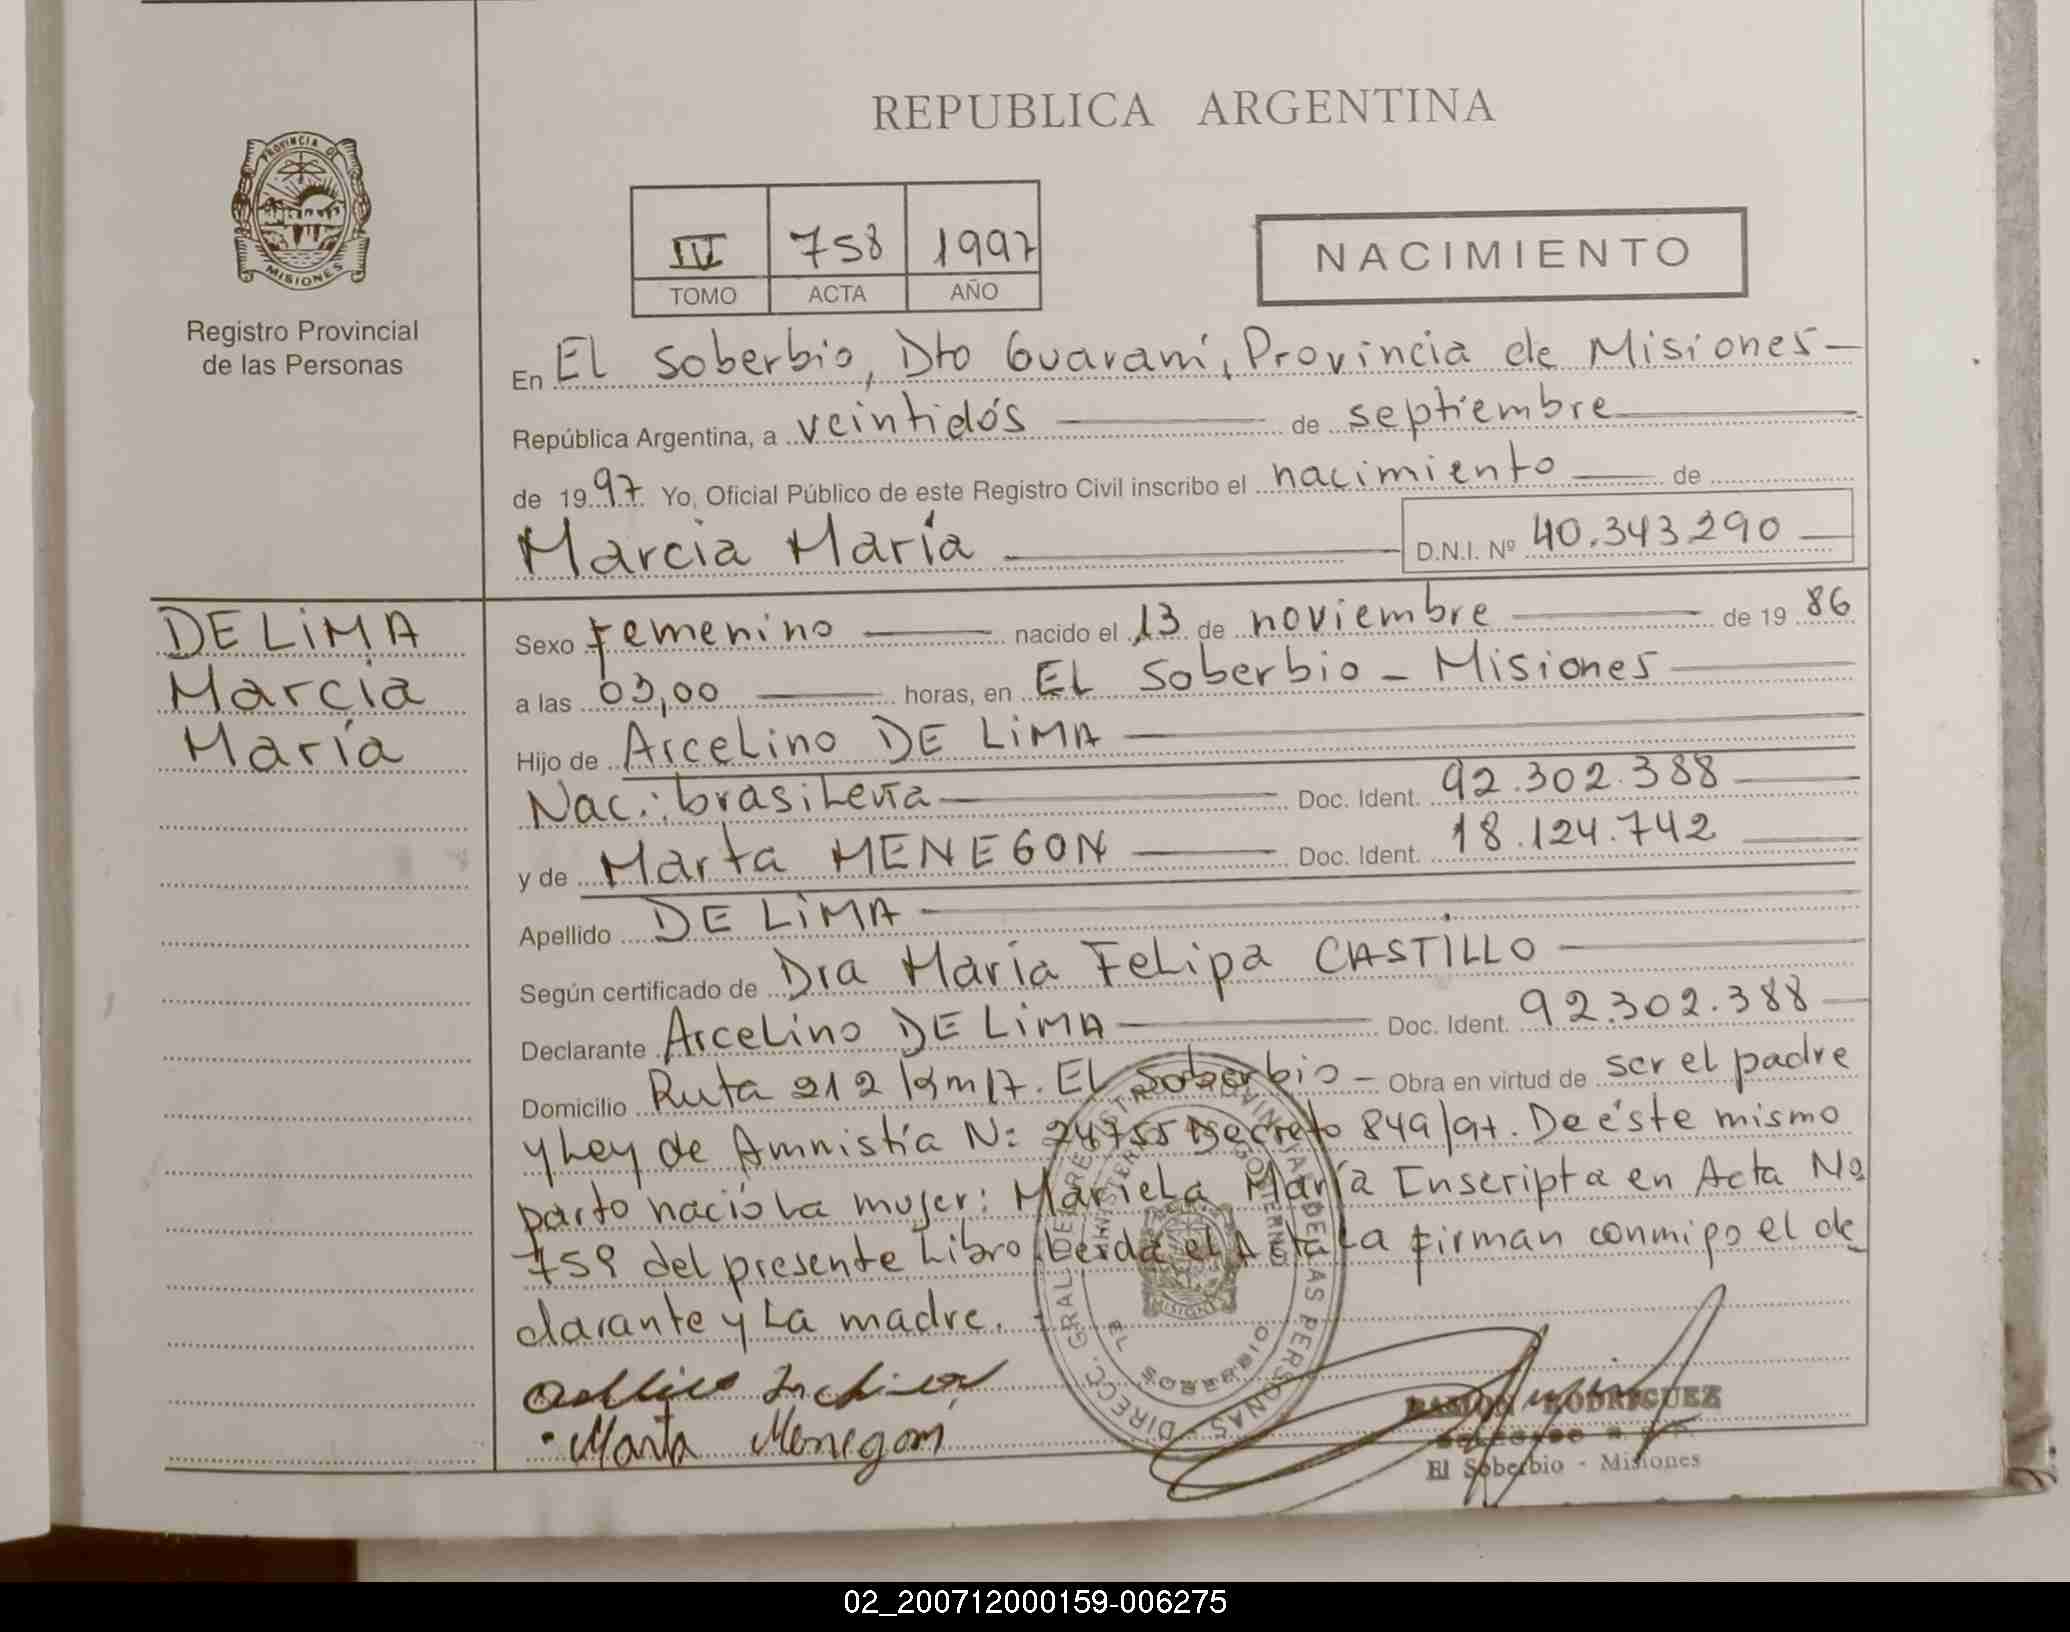 REPUBLICA ARGENTINA
PROVINCIA DE
MISIONES
Registro Provincial
de las Personas
IV 758 1997
TOMO ACTA AÑO
NACIMIENTO
En El Soberbio, Dto Guaraní, Provincia de Misiones
República Argentina, a veintidós de septiembre
de 1997 Yo, Oficial Público de este Registro Civil inscribo el nacimiento de
Marcia María D.N.I. Nº 40.343.290
DE LIMA
Marcia
María
Sexo femenino nacido el 13 de noviembre de 1986
a las 03,00 horas, en El Soberbio - Misiones
Hijo de Arcelino DE LIMA
Nac.: brasileña Doc. Ident. 92.302.388
y de Marta MENEGON Doc. Ident. 18.124.742
Apellido DE LIMA
Según certificado de Dra María Felipa CASTILLO
Declarante Arcelino DE LIMA Doc. Ident. 92.302.388
Domicilio Ruta 212 km 17. El Soberbio - Obra en virtud de ser el padre
y Ley de Amnistía Nº 24755 Decreto 849/97. De éste mismo
parto nació la mujer: Mariela María Inscripta en Acta Nº
759 del presente Libro. Leída el Acta la firman conmigo el de
clarante y la madre.
Marta Menegon
DIRECC. GRAL DE REGISTRO PROVINCIAL DE LAS PERSONAS
MINISTERIO GOBIERNO
MISIONES
EL SOBERBIO
RAMON RODRIGUEZ
El Soberbio - Misiones
02_200712000159-006275